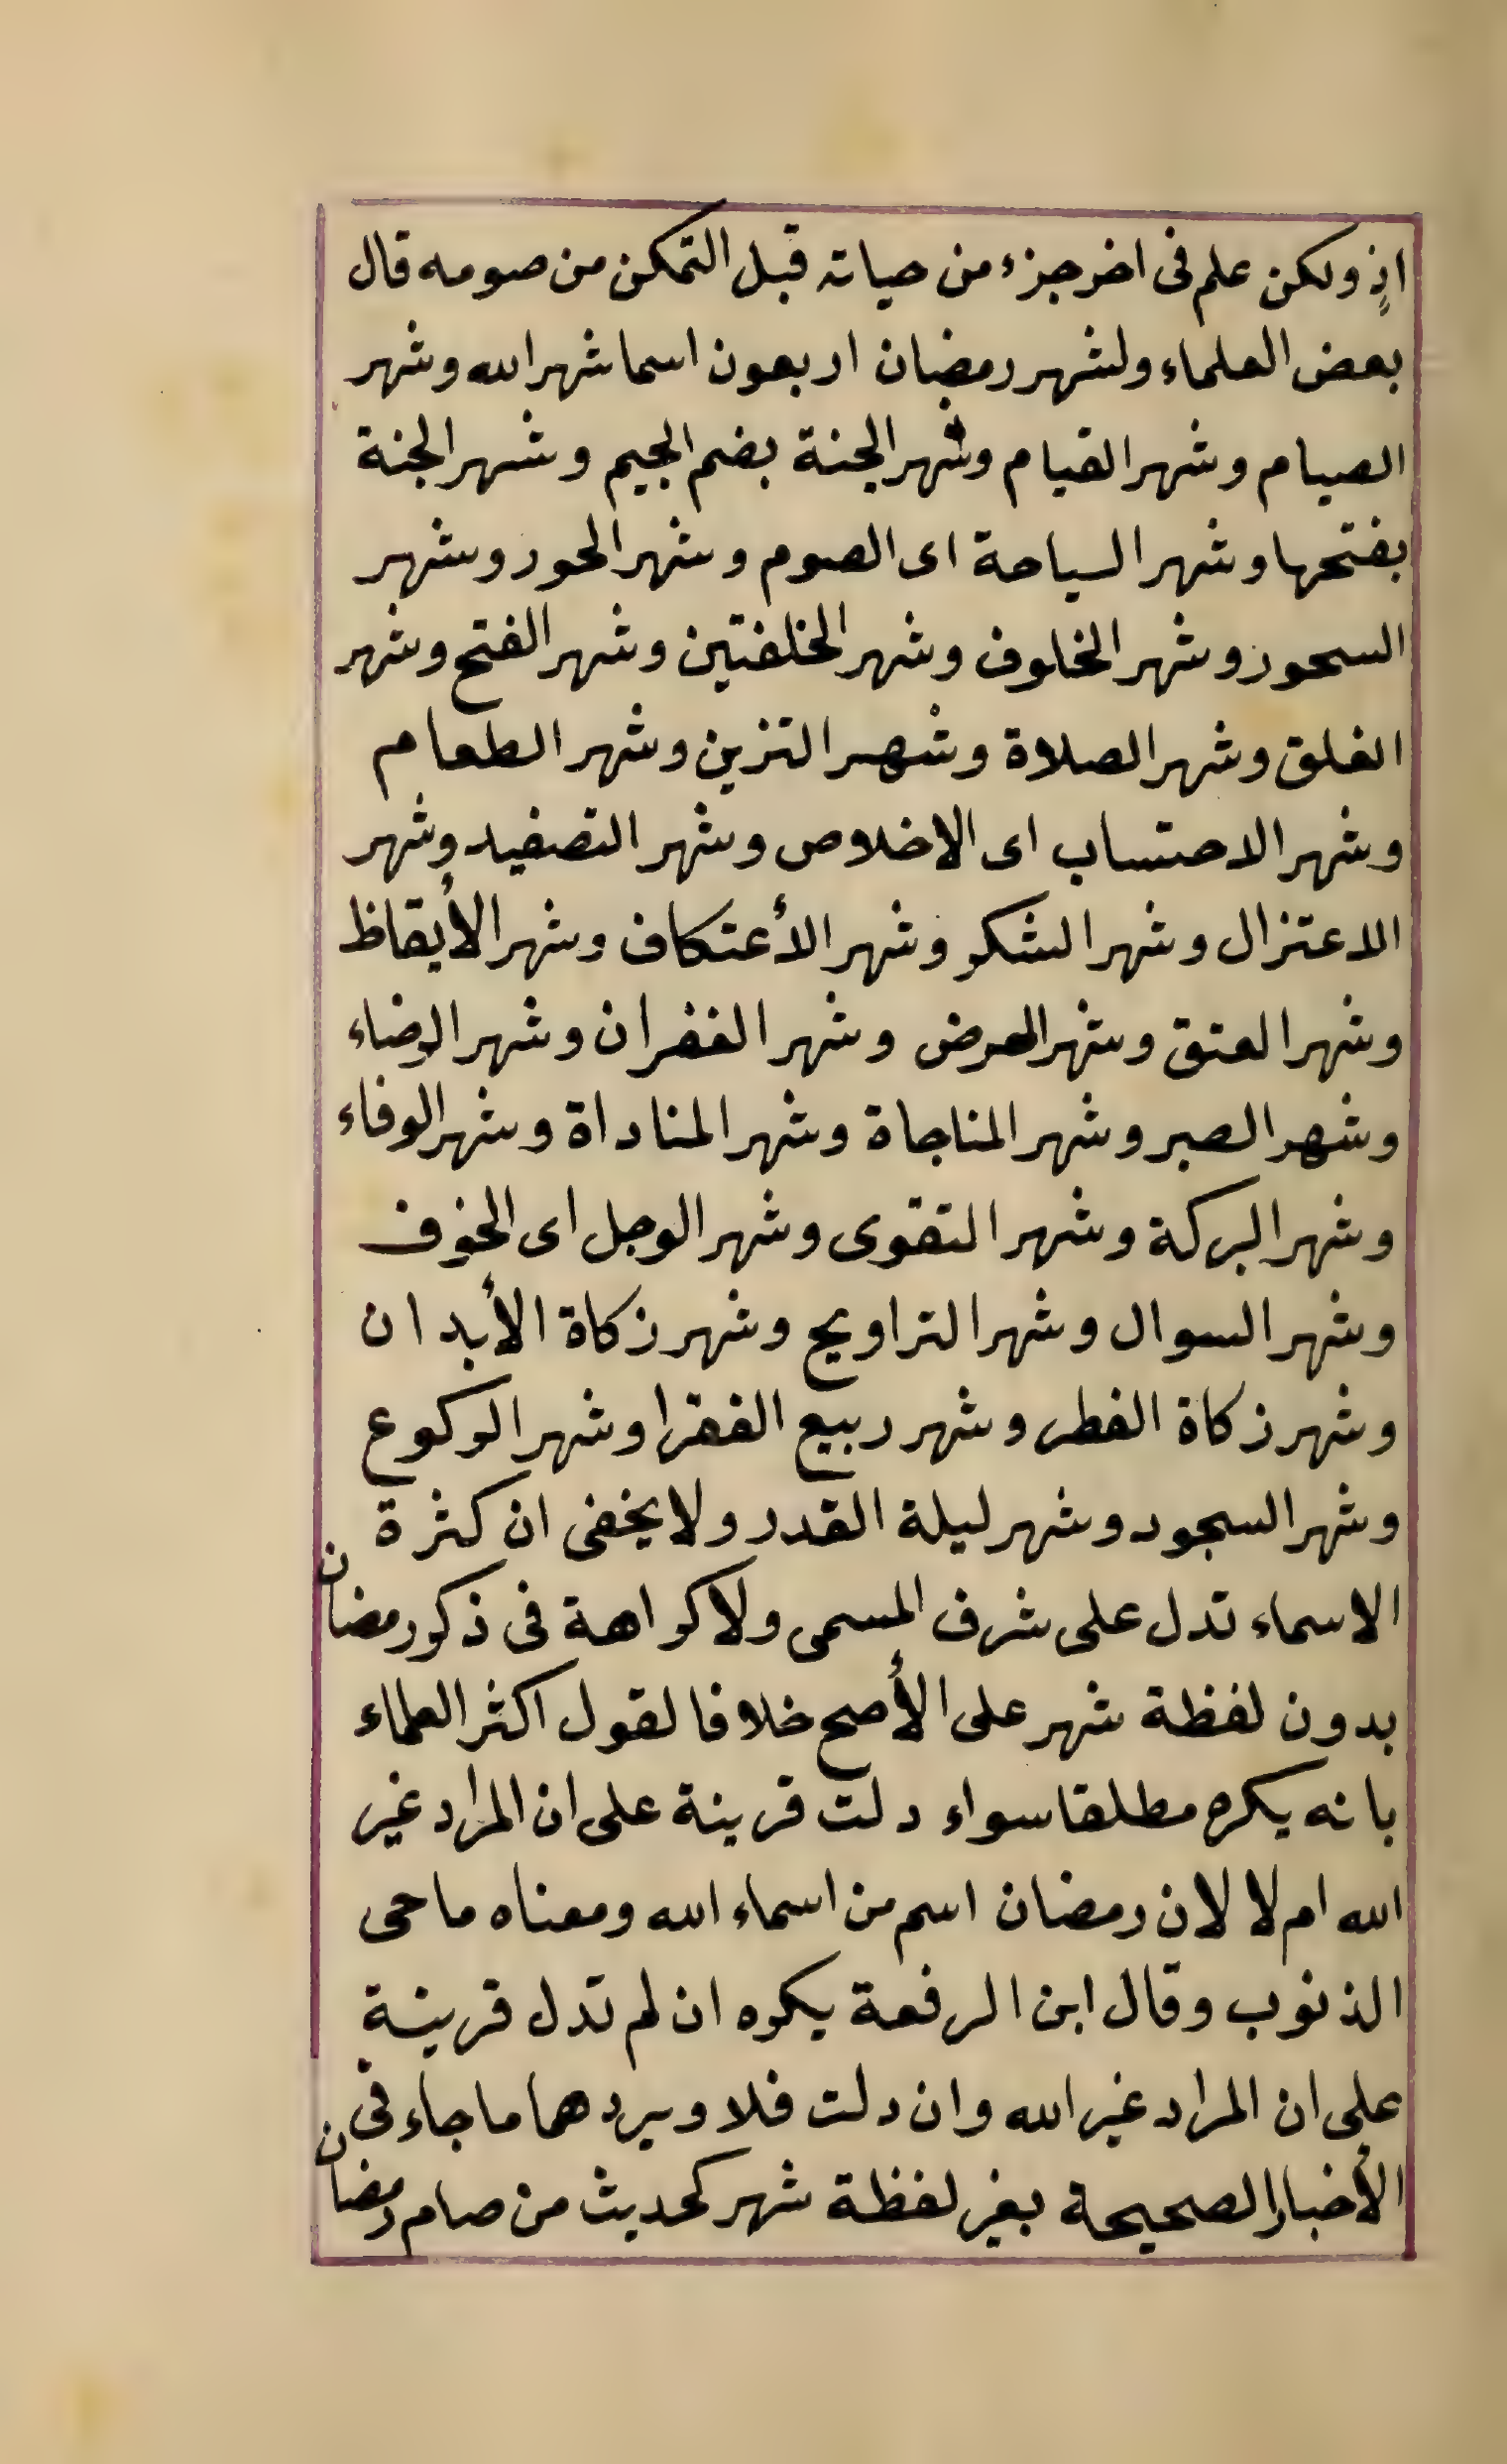 اذٍ ولكن علم فى اخر جزء من حياته قبل التمكن من صومه قال
بعض العلماء ولشهر رمضان اربعون اسما شهر الله وشهر
الصيام وشهر القيام وشهر الجنة بضم الجيم وشهر الجنة
بفتحها وشهر السياحة اى الصوم وشهر الحور وشهر
السحور وشهر الخلوف وشهر الخلفتين وشهر الفتح وشهر
الغلق وشهر الصلاة وشهر التزين وشهر الطعام
وشهر الاحتساب اى الاخلاص وشهر التصفيد وشهر
الاعتزال وشهر الشكر وشهر الأعتكاف وشهر الأيقاظ
وشهر العتق وشهر العرض وشهر الغفران وشهر الرضاء
وشهر الصبر وشهر المناجاة وشهر المناداة وشهر الوفاء
وشهر البركة وشهر التقوى وشهر الوجل اى الخوف
وشهر السوال وشهر التراويح وشهر زكاة الأبدان
وشهر زكاة الفطر وشهر ربيع الفقرا وشهر الركوع
وشهر السجود وشهر ليلة القدر ولا يخفى ان كثرة
الاسماء تدل على شرف المسمى ولا كراهة فى ذكر رمضان
بدون لفظة شهر على الأصح خلافا لقول اكثر العلماء
بانه يكره مطلقا سواء دلت قرينة على ان المراد غير
الله ام لا لان رمضان اسم من اسماء الله ومعناه ماحى
الذنوب وقال ابن الرفعة يكره ان لم تدل قرينة
على ان المراد غير الله وان دلت فلا ويردهما ما جاء فى
الأخبار الصحيحة بغير لفظة شهر كحديث من صام رمضان